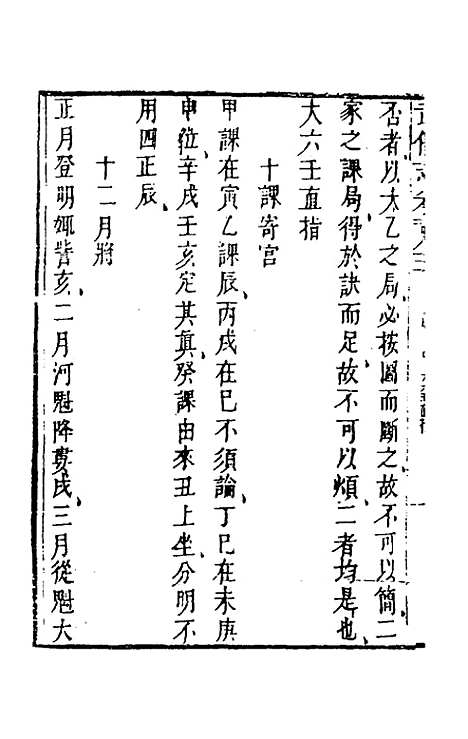 否者以太乙之局必按圖而斷之故不可以簡二
家之課局得於訣而足故不可以煩二者均是也
大六壬直指
十課寄宮
甲課在寅乙課辰丙戌在巳不須論丁巳在未庚
申位辛戌壬亥定其真癸課由來丑上坐分明不
用四正辰
十二月將
正月登明娵訾亥二月河魁降婁戌三月從魁大